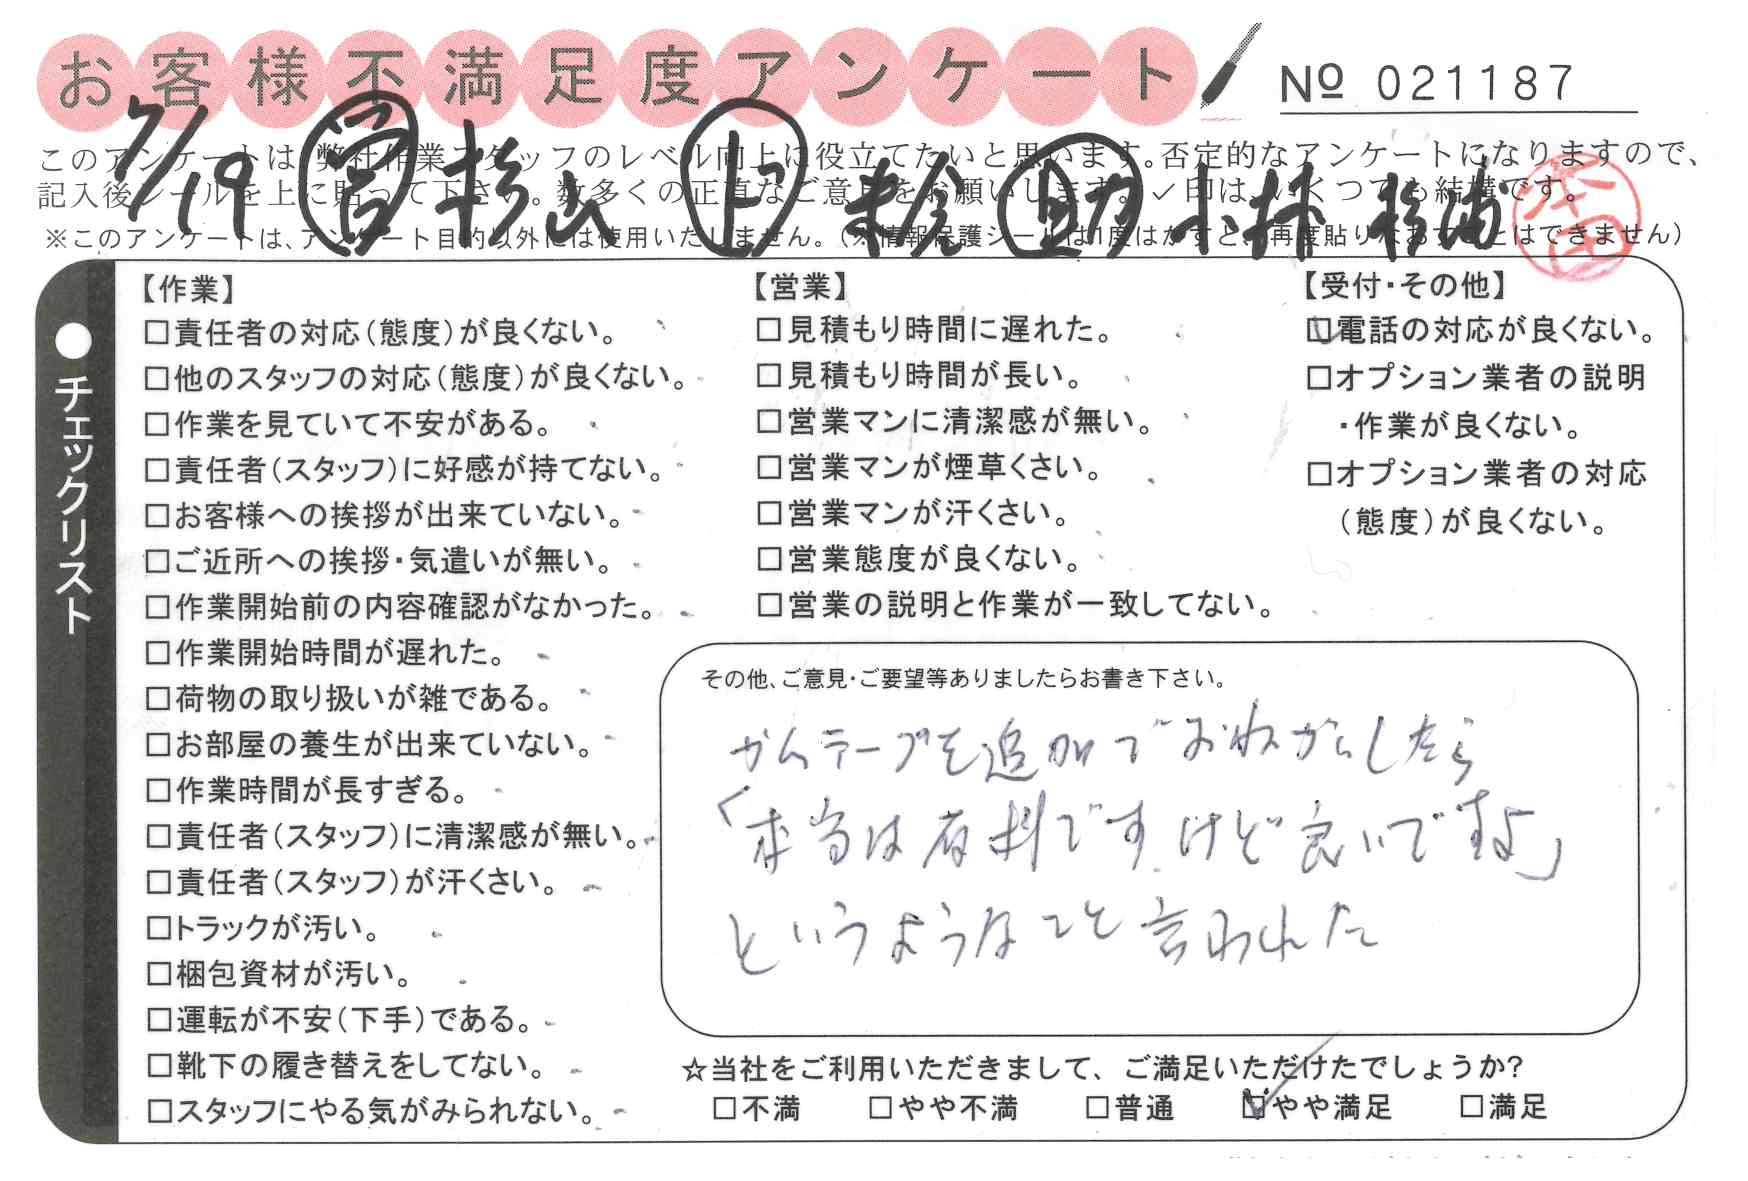 お客様不満足度アンケート
№ 021187
7/19 杉山 上 米倉 助 小林 杉浦
このアンケートは、弊社作業スタッフのレベル向上に役立てたいと思います。否定的なアンケートになりますので、
記入後シールを上に貼って下さい。数多くの正直なご意見をお願いします。✓印は、いくつでも結構です。
※このアンケートは、アンケート目的以外には使用いたしません。(※情報保護シールは1度はがすと、再度貼りなおすことはできません)
チェックリスト
【作業】
□責任者の対応(態度)が良くない。
□他のスタッフの対応(態度)が良くない。
□作業を見ていて不安がある。
□責任者(スタッフ)に好感が持てない。
□お客様への挨拶が出来ていない。
□ご近所への挨拶・気遣いが無い。
□作業開始前の内容確認がなかった。
□作業開始時間が遅れた。
□荷物の取り扱いが雑である。
□お部屋の養生が出来ていない。
□作業時間が長すぎる。
□責任者(スタッフ)に清潔感が無い。
□責任者(スタッフ)が汗くさい。
□トラックが汚い。
□梱包資材が汚い。
□運転が不安(下手)である。
□靴下の履き替えをしてない。
□スタッフにやる気がみられない。
【営業】
□見積もり時間に遅れた。
□見積もり時間が長い。
□営業マンに清潔感が無い。
□営業マンが煙草くさい。
□営業マンが汗くさい。
□営業態度が良くない。
□営業の説明と作業が一致してない。
【受付・その他】
☑電話の対応が良くない。
□オプション業者の説明
・作業が良くない。
□オプション業者の対応
(態度)が良くない。
その他、ご意見・ご要望等ありましたらお書き下さい。
ガムテープを追加でおねがいしたら
「本当は有料ですけど良いですよ」
というようなことを言われた
☆当社をご利用いただきまして、ご満足いただけたでしょうか?
□不満 □やや不満 □普通 ☑やや満足 □満足